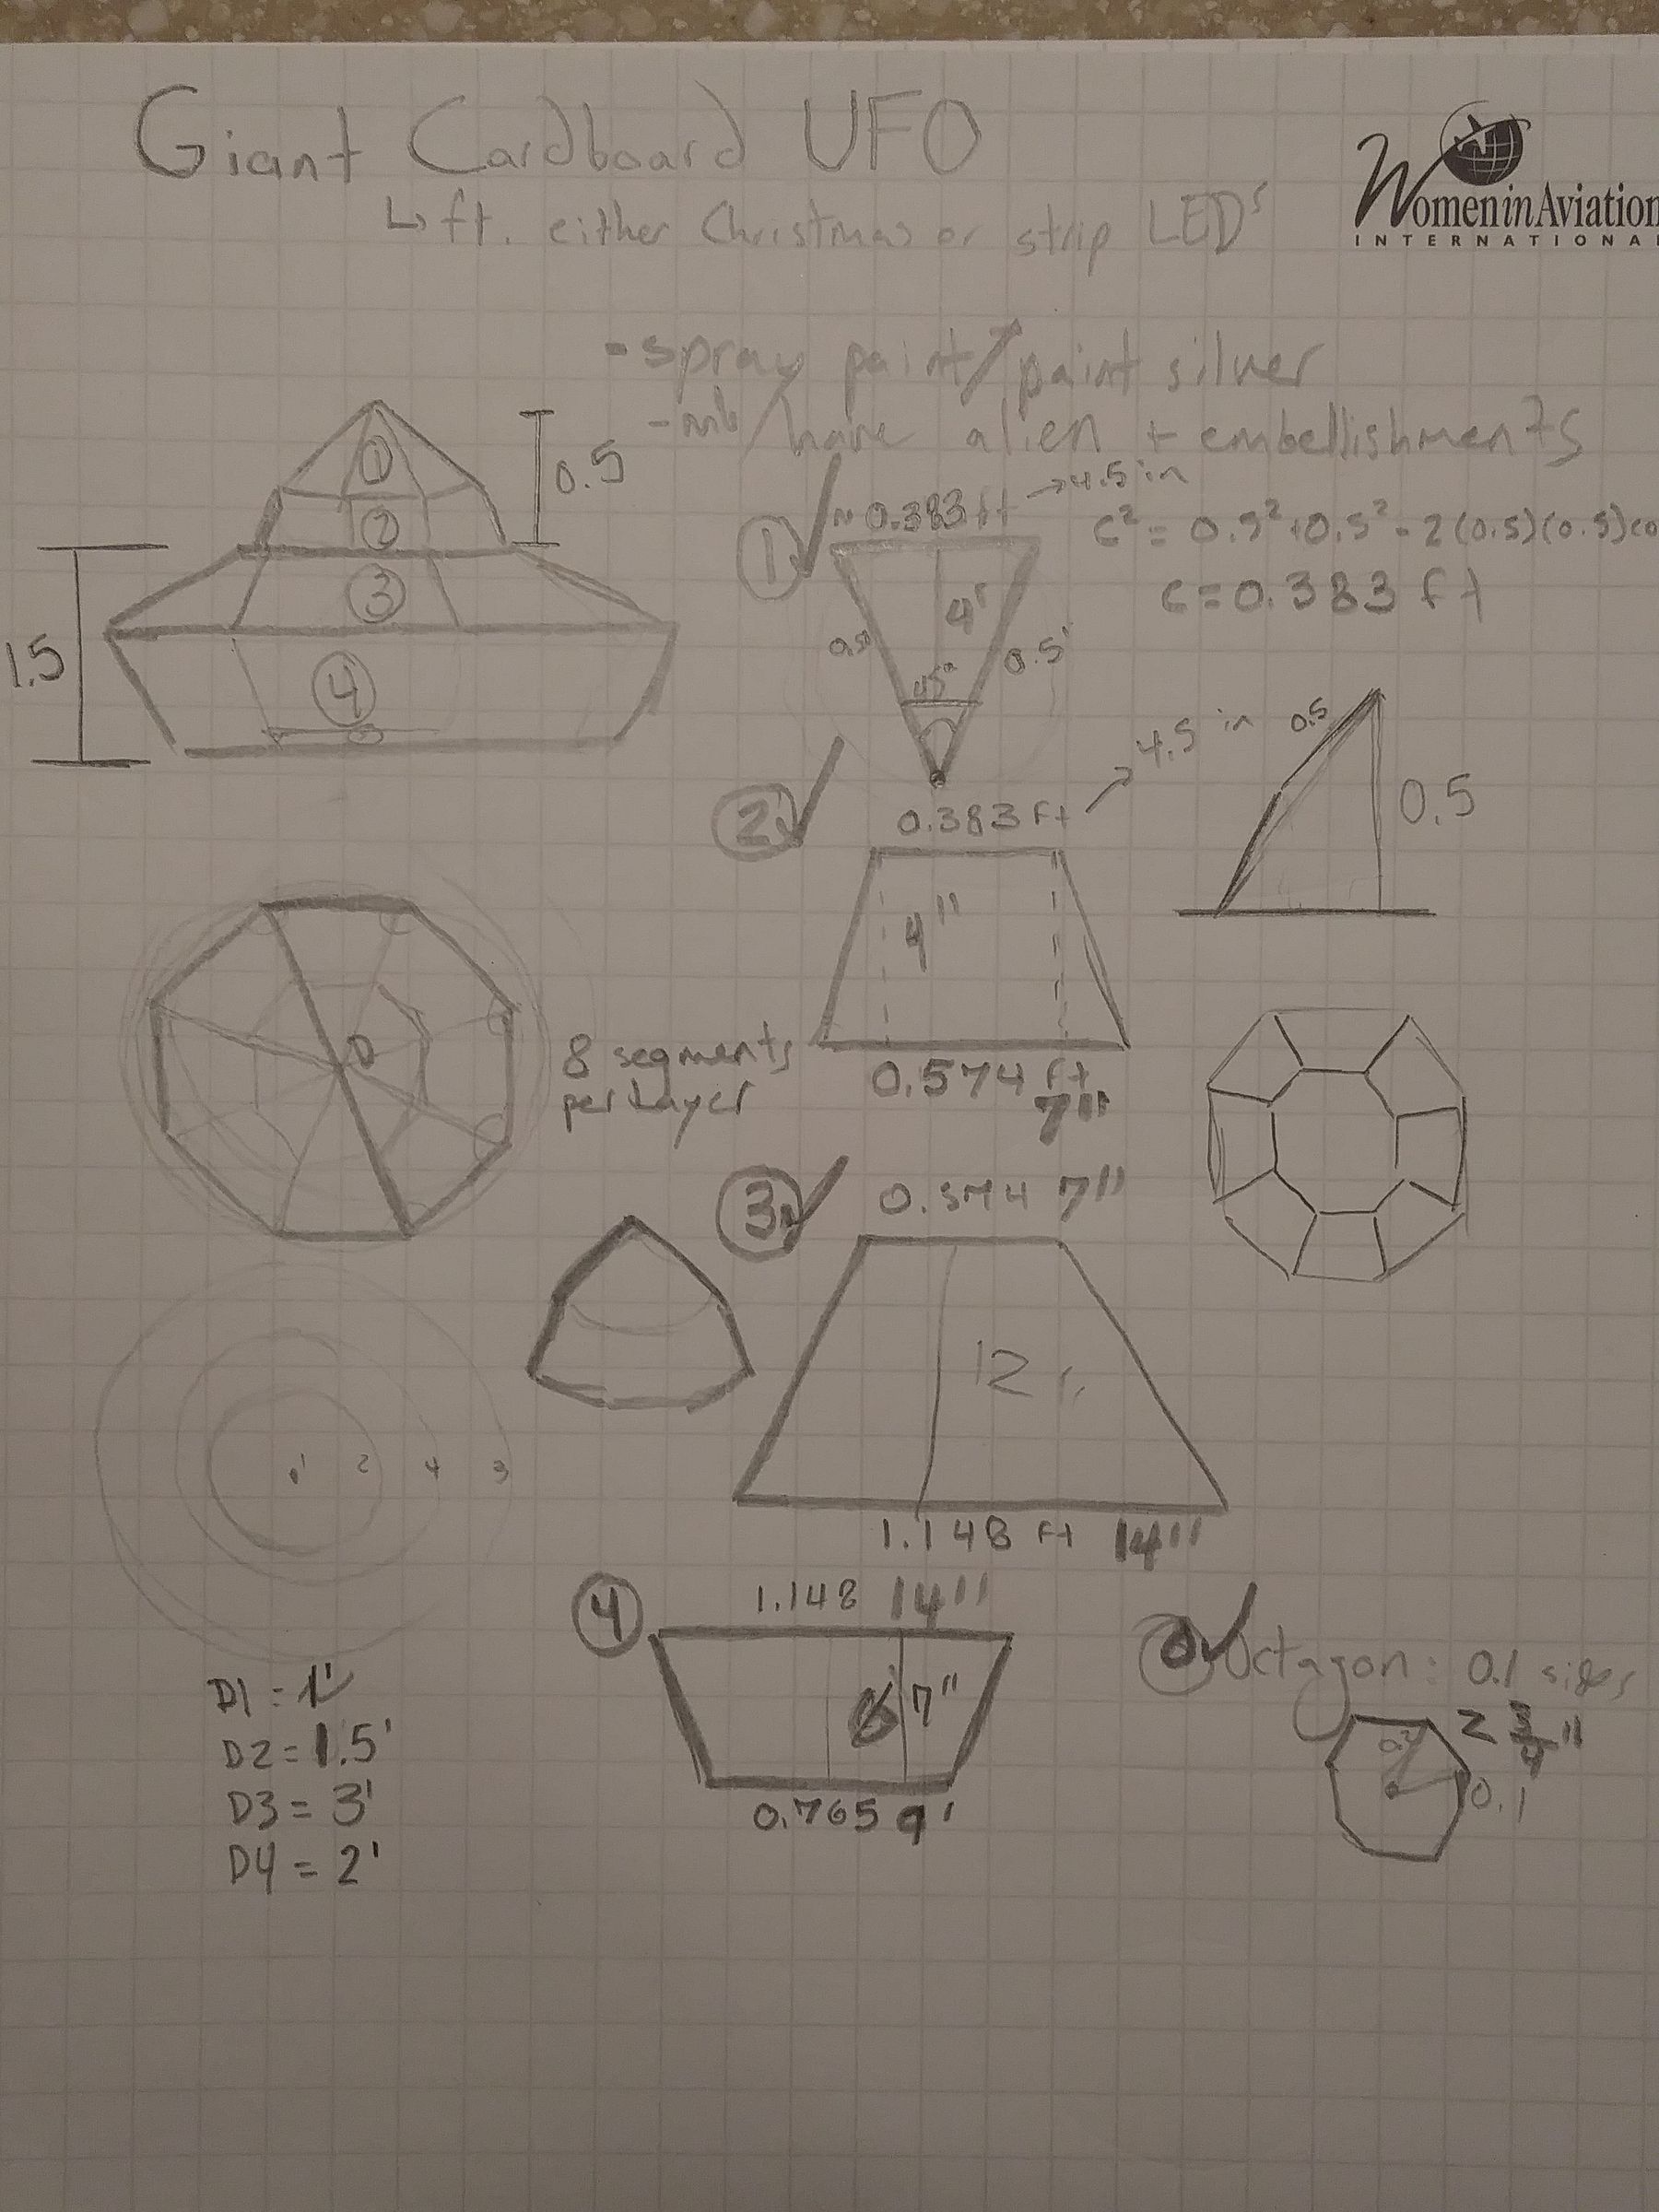 Giant Cardboard UFO
↳ ft. either Christmas or strip LEDs
Women in Aviation
INTERNATIONAL
- spray paint/paint silver
- mb/have alien + embellishments
0.5
1.5
①
②
③
④
① ~0.383 ft → 4.5 in
4'
0.5'
45°
c² = 0.5² + 0.5² - 2(0.5)(0.5)co
c = 0.383 ft
② 0.383 ft → 4.5 in
4"
0.574 ft
7"
0.5
0.5
D
8 segments
per Layer
③ 0.574 7"
12"
1.148 ft 14"
1 2 4 3
D1 = 1'
D2 = 1.5'
D3 = 3'
D4 = 2'
④ 1.148 14"
7"
0.765 9'
Octagon: 0.1 sides
2 3/4"
0.1